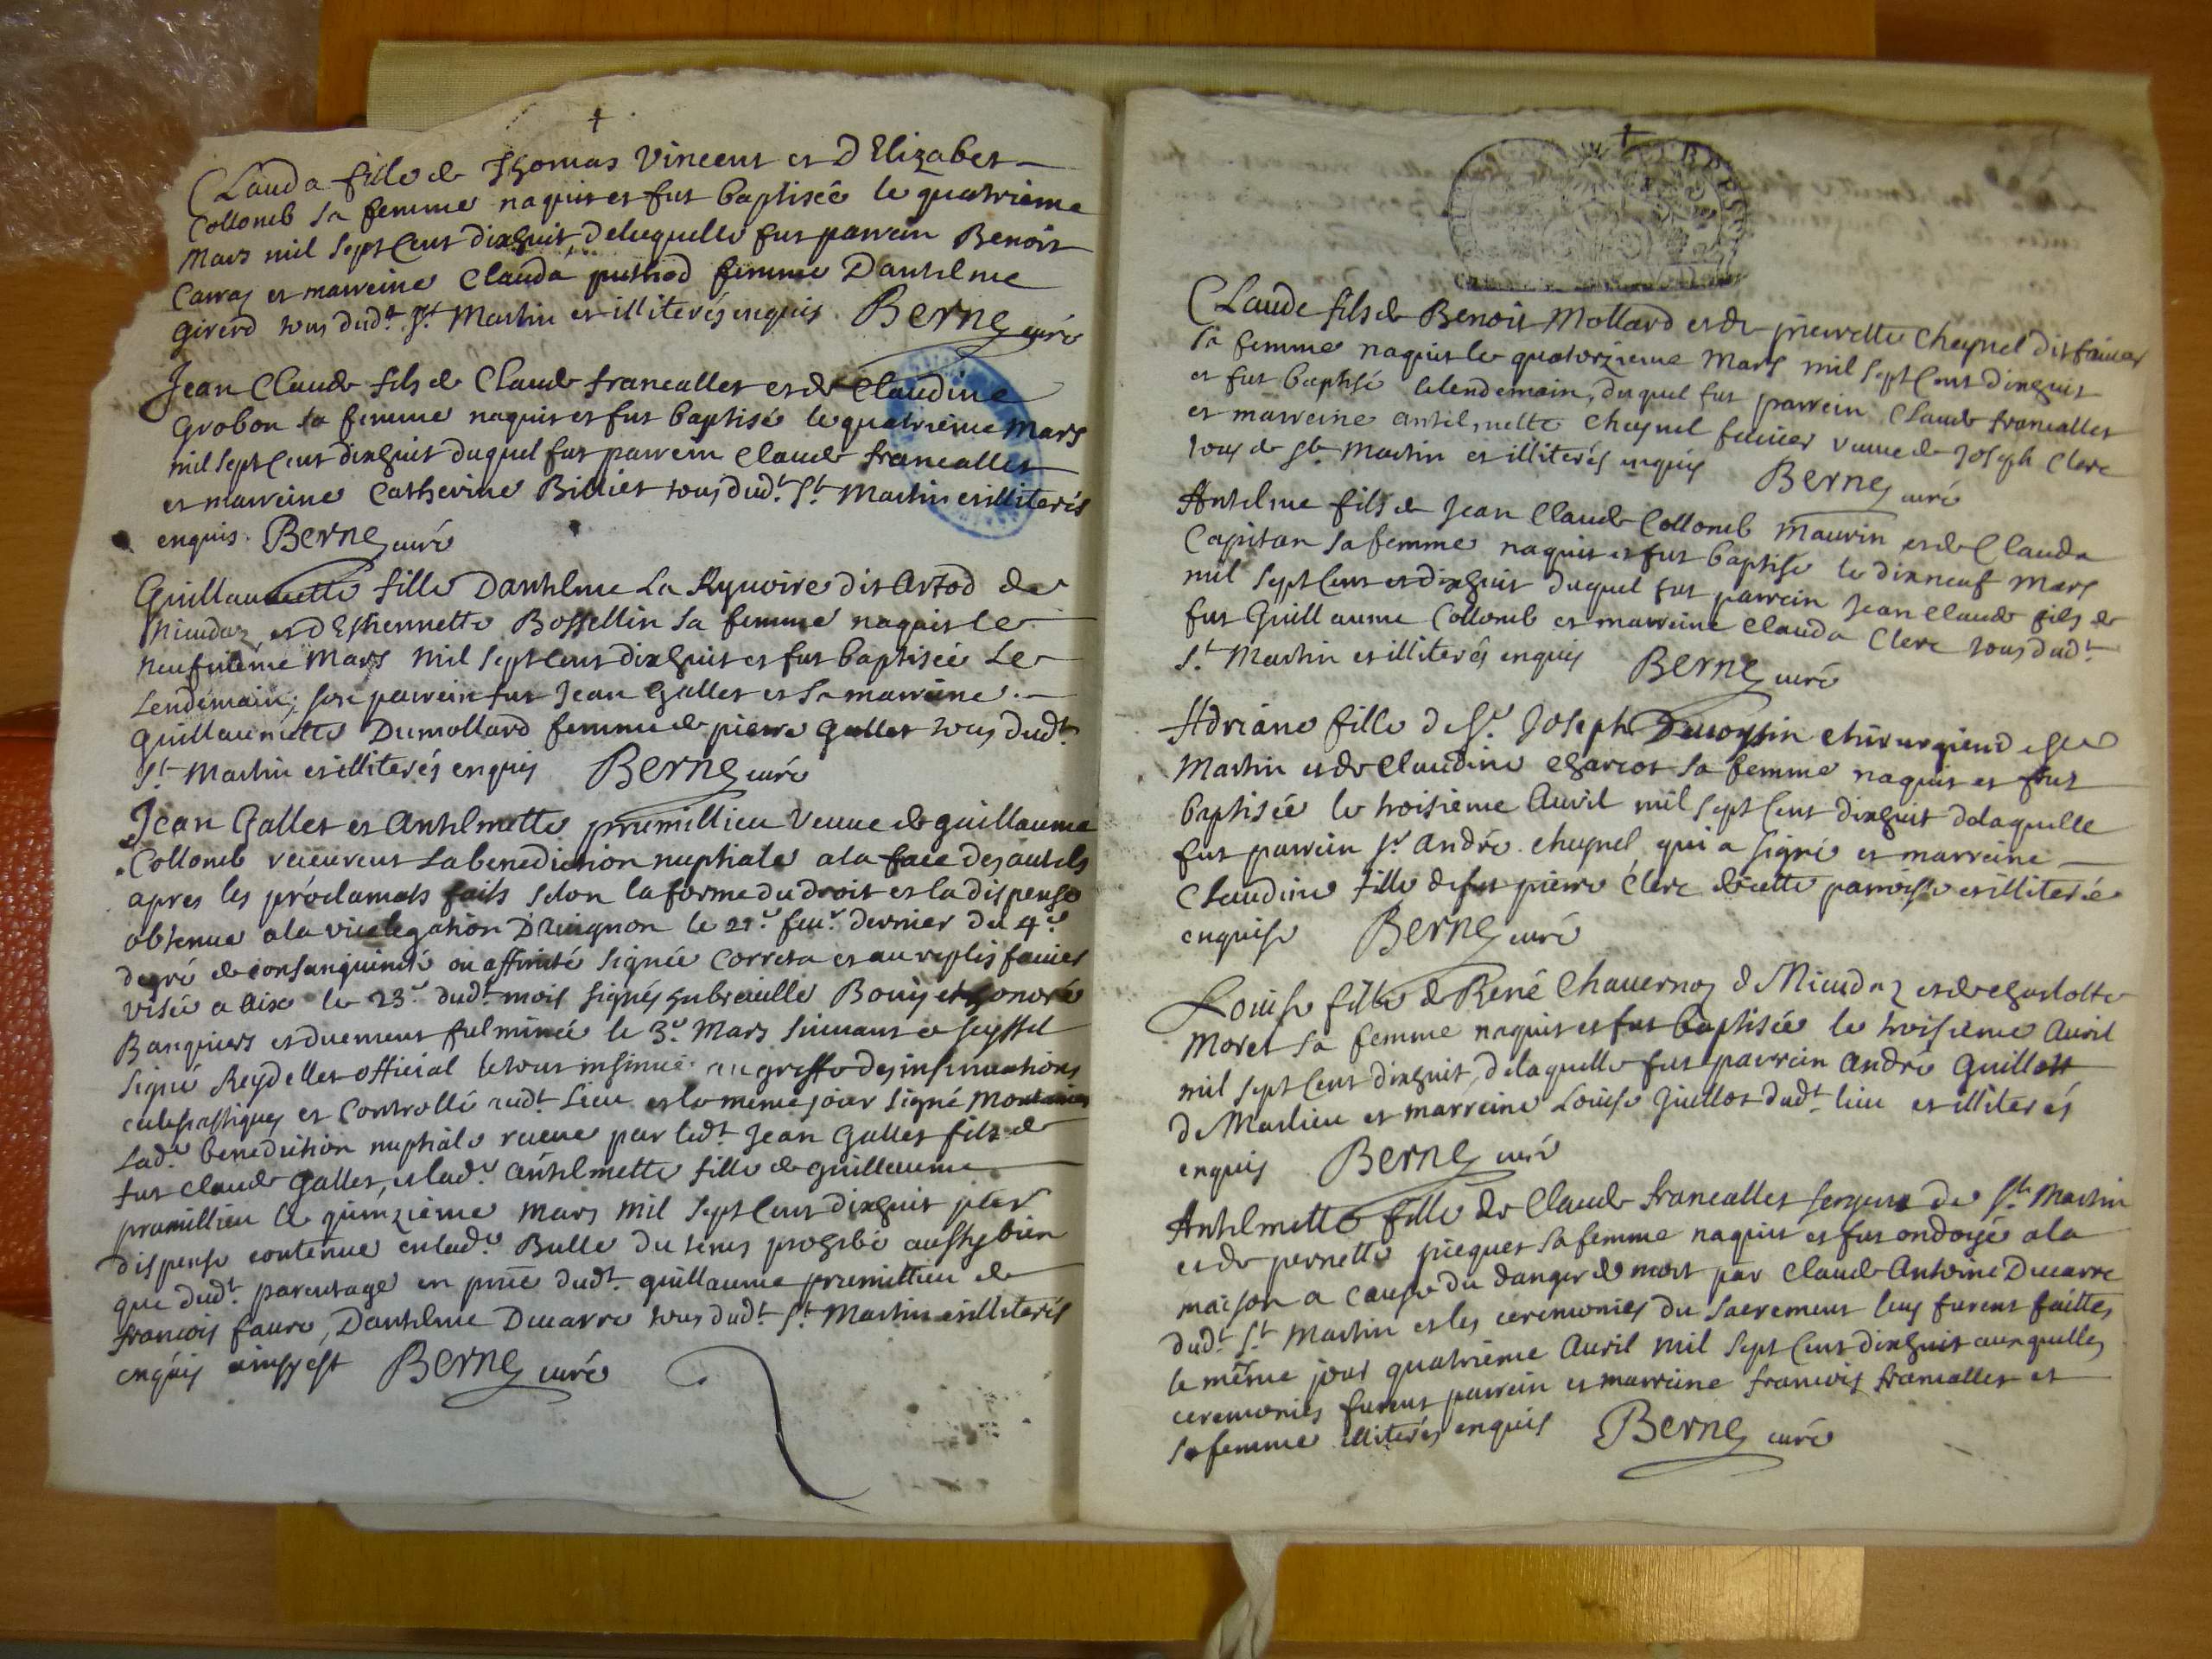 Clauda fille de Thomas Vincent et d Elizabet
Collomb sa femme naquit et fut baptisée le quatrieme
Mars mil sept cent dixhuit, delaquelle fut parrein Benoit
Carraz et marreine Clauda puthod femme Danthelme
Girerd tous dudt. St. Martin et illiterés enquis Berne curé
Jean Claude fils de Claude francallet et de Claudine
Grobon sa femme naquit et fut baptisé le quatrieme Mars
mil sept cent dixhuit duquel fut parrein Claude francallet
et marreine Catherine Billiet tous dudt. St. Martin et illiterés
enquis. Berne curé
Guillaumette fille Danthelme La Ryvoire dit Artod de
et d Ethiennette Bossellin sa femme naquit le
neufvieme Mars mil sept cent dixhuit et fut baptisée Le
Lendemain; son parrein fut Jean Gallet et sa marreine
Guillaumette Dumollard femme de pierre Gallet tous dudt.
St. Martin et illiterés enquis Berne curé
Jean Gallet et Anthelmette prumillieu veuve de guillaume
Collomb receurent La benediction nuptiale a la face des autels
apres les proclamats faits selon la forme du droit et la dispense
obtenue a la vicelegation D'avignon le 21e. feur. dernier du 4e.
degré de consanguinité ou affinité signée Correta et au replis
visée a Aix le 23e. dudt. mois signés Bouis et honoré
Banquiers et duement fulminée le 3e. Mars suivant a seyssel
signé Reydellet official le tout insinué au greffe des insinuations
eclesiastiques et Controllé audt. Lieu et le meme jour signé
Lade. benediction nuptiale receue par ledt. Jean Gallet fils de
fut Claude Gallet, et lade. anthelmette fille de guillaume
prumillieu le quinzieme mars mil sept cent dixhuit
dispense contenue en lade. Bulle du tems prohibé aussy bien
que dudt. parentage en pnce dudt. guillaume prumillieu de
francois faure, Danthelme Ducarre tous dudt. St. Martin et illiterés
enquis ainsy est Berne curé
Claude fils de Benoit Mollard et de pierrette Cheynel dit
sa femme naquit le quatorzieme Mars mil sept cent dixhuit
et fut baptisé le lendemain, duquel fut parrein Claude francallet
et marreine anthelmette Cheynel veuve de Joseph Clerc
tous de St. Martin et illiterés enquis Berne curé
Anthelme fils de Jean Claude Collomb Maurin et de Clauda
Capitan sa femme naquit et fut baptisé le dixneuf Mars
mil sept cent et dixhuit duquel fut parrein Jean Claude fils de
fut Guillaume Collomb et marreine Clauda Clerc tous dudt.
St. Martin et illiterés enquis Berne curé
Adriane fille de Sr. Joseph chirurgien
Martin et de Claudine Charcot sa femme naquit et fut
baptisée le troisieme Auril mil sept cent dixhuit delaquelle
fut parrein Sr. André cheynel qui a signé et marreine
Claudine fille de fut pierre Clerc de cette parroisse et illiterée
enquise Berne curé
Louise fille de René Chauernoz de et de Charlotte
Moret sa femme naquit et fut baptisée le troisieme Auril
mil sept cent dixhuit, delaquelle fut parrein André Guillot
de Marlieu et marreine Louise Guillot dudt. lieu et illiterés
enquis Berne curé
Anthelmette fille de Claude francallet sergent de St. Martin
et de pernette picquet sa femme naquit et fut ondoyé a la
maison a cause du danger de mort par Claude Antoine Ducarre
dudt. St. Martin et les ceremonies du sacrement luy furent faittes
le même jour quatrieme Auril mil sept cent dixhuit auxquelles
ceremonies furent parrein et marreine francois francallet et
sa femme illiterés enquis Berne curé